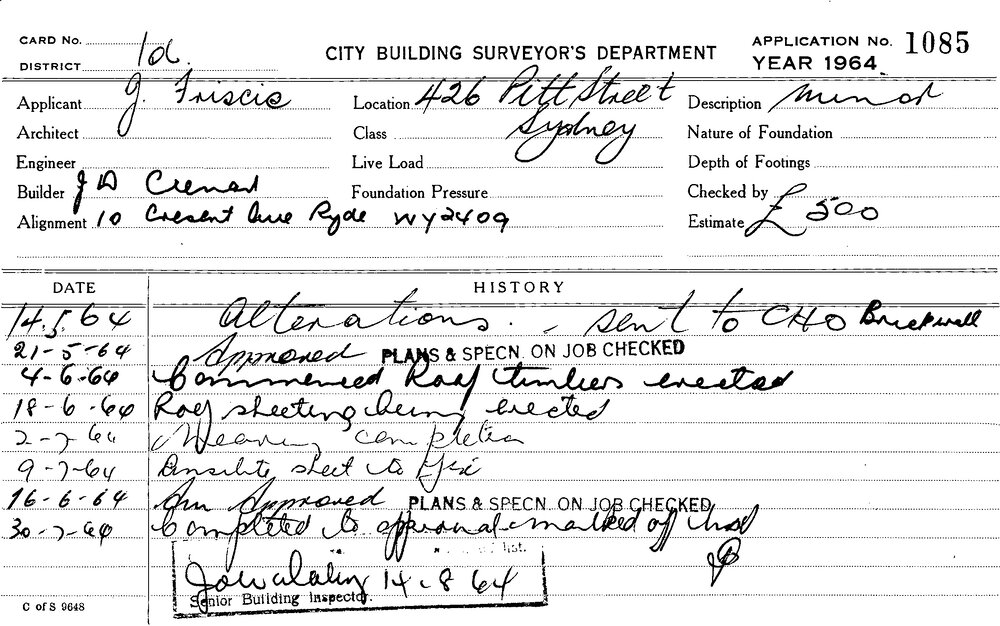 CARD No. 1d.
CITY BUILDING SURVEYOR'S DEPARTMENT
APPLICATION No. 1085
DISTRICT
YEAR 1964
Applicant J. Friscis
Location 426 Pitt Street
Description Minor
Architect
Class Sydney
Nature of Foundation
Engineer
Live Load
Depth of Footings
Builder J D
Foundation Pressure
Checked by
Alignment 10 Cresent Ave Ryde WY2409
Estimate £500
DATE HISTORY
14.5.64 Alterations. - sent to CHO Brickwell
21-5-64 Approved PLANS & SPECN. ON JOB CHECKED
4-6-64 Commenced Roof timbers erected
18-6-64 Roof sheeting being erected
2-7-64 Nearing completion
9-7-64 sheet to fix
16-6-64 Approved PLANS & SPECN. ON JOB CHECKED
30-7-64 Completed to approval marked off
list.
14.8 64
Senior Building Inspector.
C of S 9648